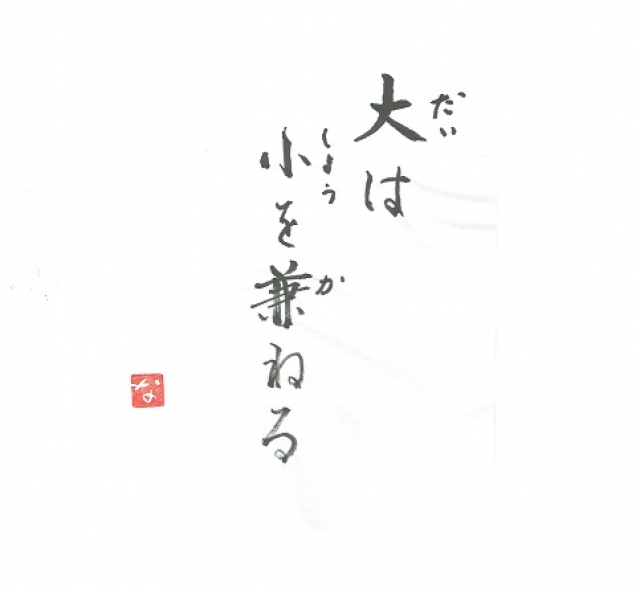 大は
だい
小を兼ねる
しょう
か
な